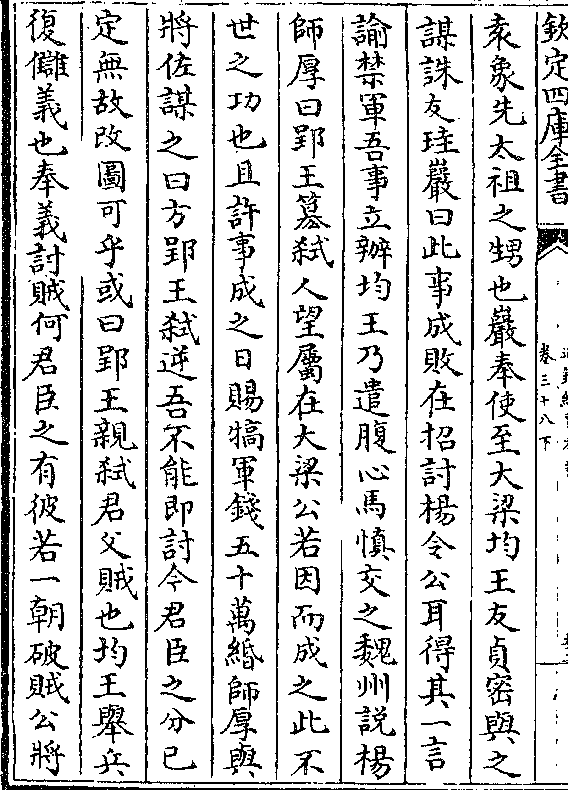 欽定四庫全書
卷三十八下
袁象先太祖之甥也巖奉使至大梁均王友貞密與之
謀誅友珪巖曰此事成敗在招討楊令公耳得其一言
諭禁軍吾事立辦均王乃遣腹心馬慎交之魏州説楊
師厚曰郢王簒弑人望屬在大梁公若因而成之此不
世之功也且許事成之日賜犒軍錢五十萬緡師厚與
將佐謀之曰方郢王弑逆吾不能即討今君臣之分已
定無故改圖可乎或曰郢王親弑君父賊也均王舉兵
復讎義也奉義討賊何君臣之有彼若一朝破賊公將